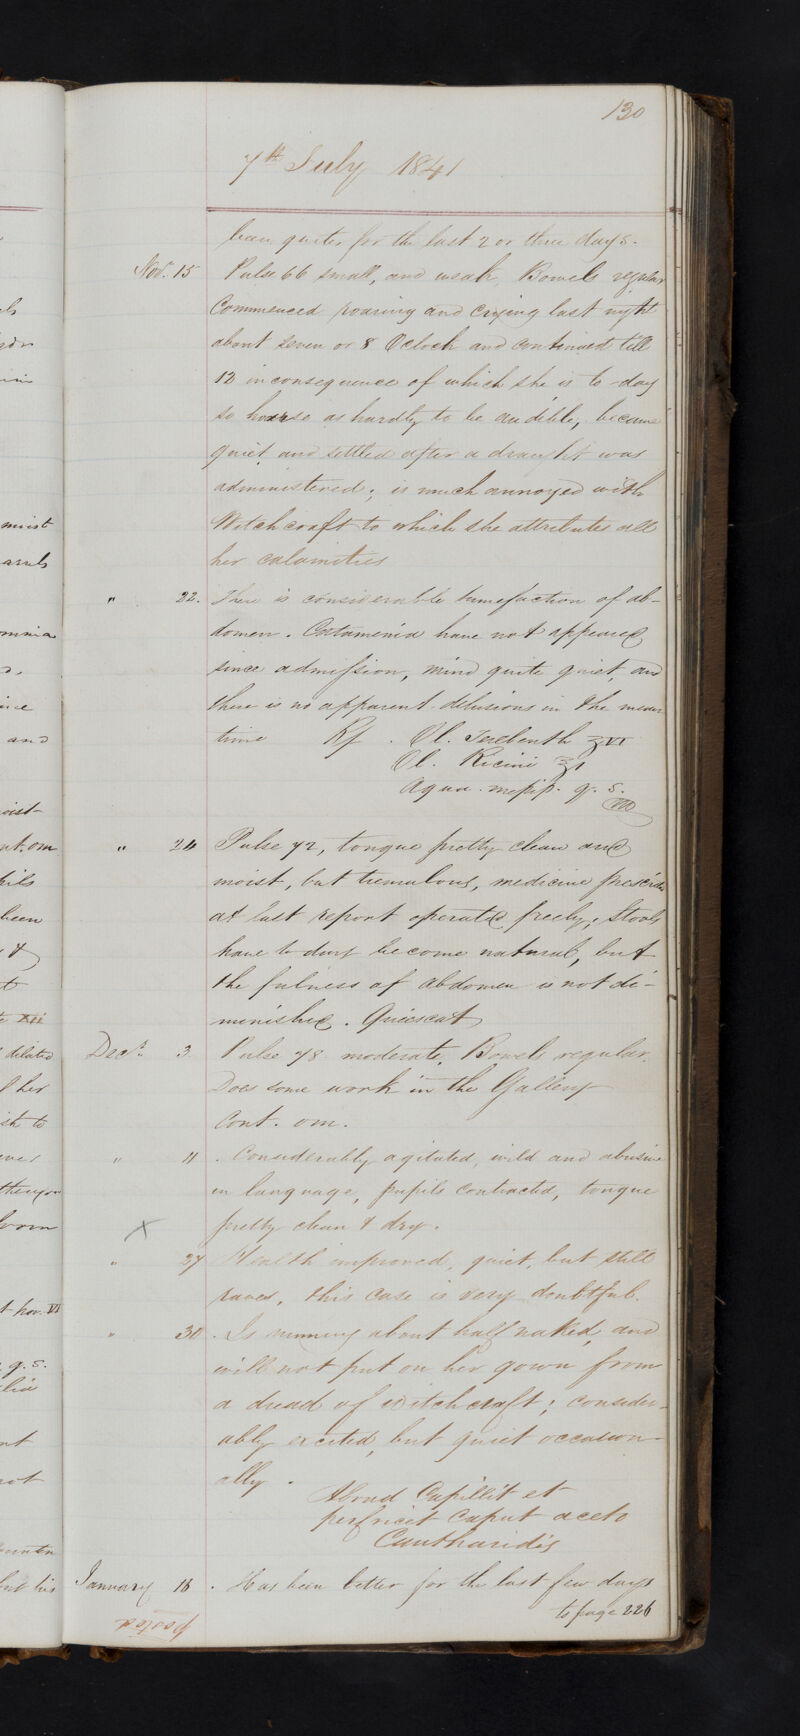 130
7th July 1841
been quieter for the last 2 or three days.
Nov. 15 Pulse 66 small, and weak, Bowels regular
Commenced roaring and crying last night
about seven or 8 Oclock and continued till
12 in consequence of which she is to-day
so hoarse as hardly to be audible, became
quiet and settled after a draught was
administered; is much annoyed with
Witchcraft to which she attributes all
her calamities
" 22. There is considerable tumefaction of ab-
domen. Catamenia have not appeared
since admission, mind quite quiet, and
there is no apparent delusions in the mean
time R/ . Ol. Terebenth ʒVI
Ol. Ricini ℥I
Aqua. q. s.
" 24 Pulse 72, tongue pretty clean and
moist, but tremulous, medicine prescribed
at last report operated freely; Stools
have to day become natural, but
the fulness of abdomen is not di-
minished. Quiescat
Decr. 3 Pulse 78 moderate. Bowels regular.
Does some work in the Gallery
Cont. om.
" 11 . Considerably agitated, wild and abusive
in language, pupils contracted, tongue
pretty clean & dry.
X
" 27 Health improved, quiet, but still
raves, this case is very doubtful.
" 30 . Is running about half naked, and
will not put on her gown from
a dread of witchcraft; consider-
ably excited, but quiet occasion-
ally .
Abrad Capillit et
perfricet Caput aceto
Cantharidis
January 16 . Has been better for the last few days
to page 226
posted
moist
and
been
dilated
her
to
q. s.
not